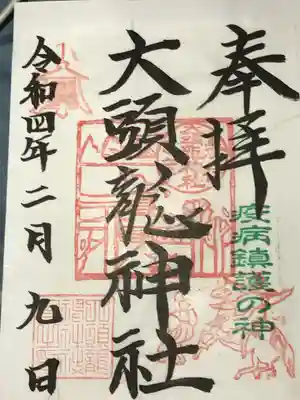 奉拝
疫病鎮護の神
大頭龍神社
令和四年二月九日